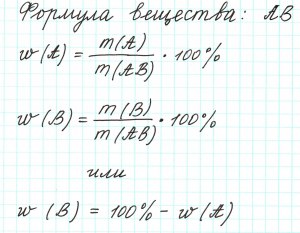 Формула вещества: AB
w(A) = m(A) / m(AB) · 100%
w(B) = m(B) / m(AB) · 100%
или
w(B) = 100% - w(A)